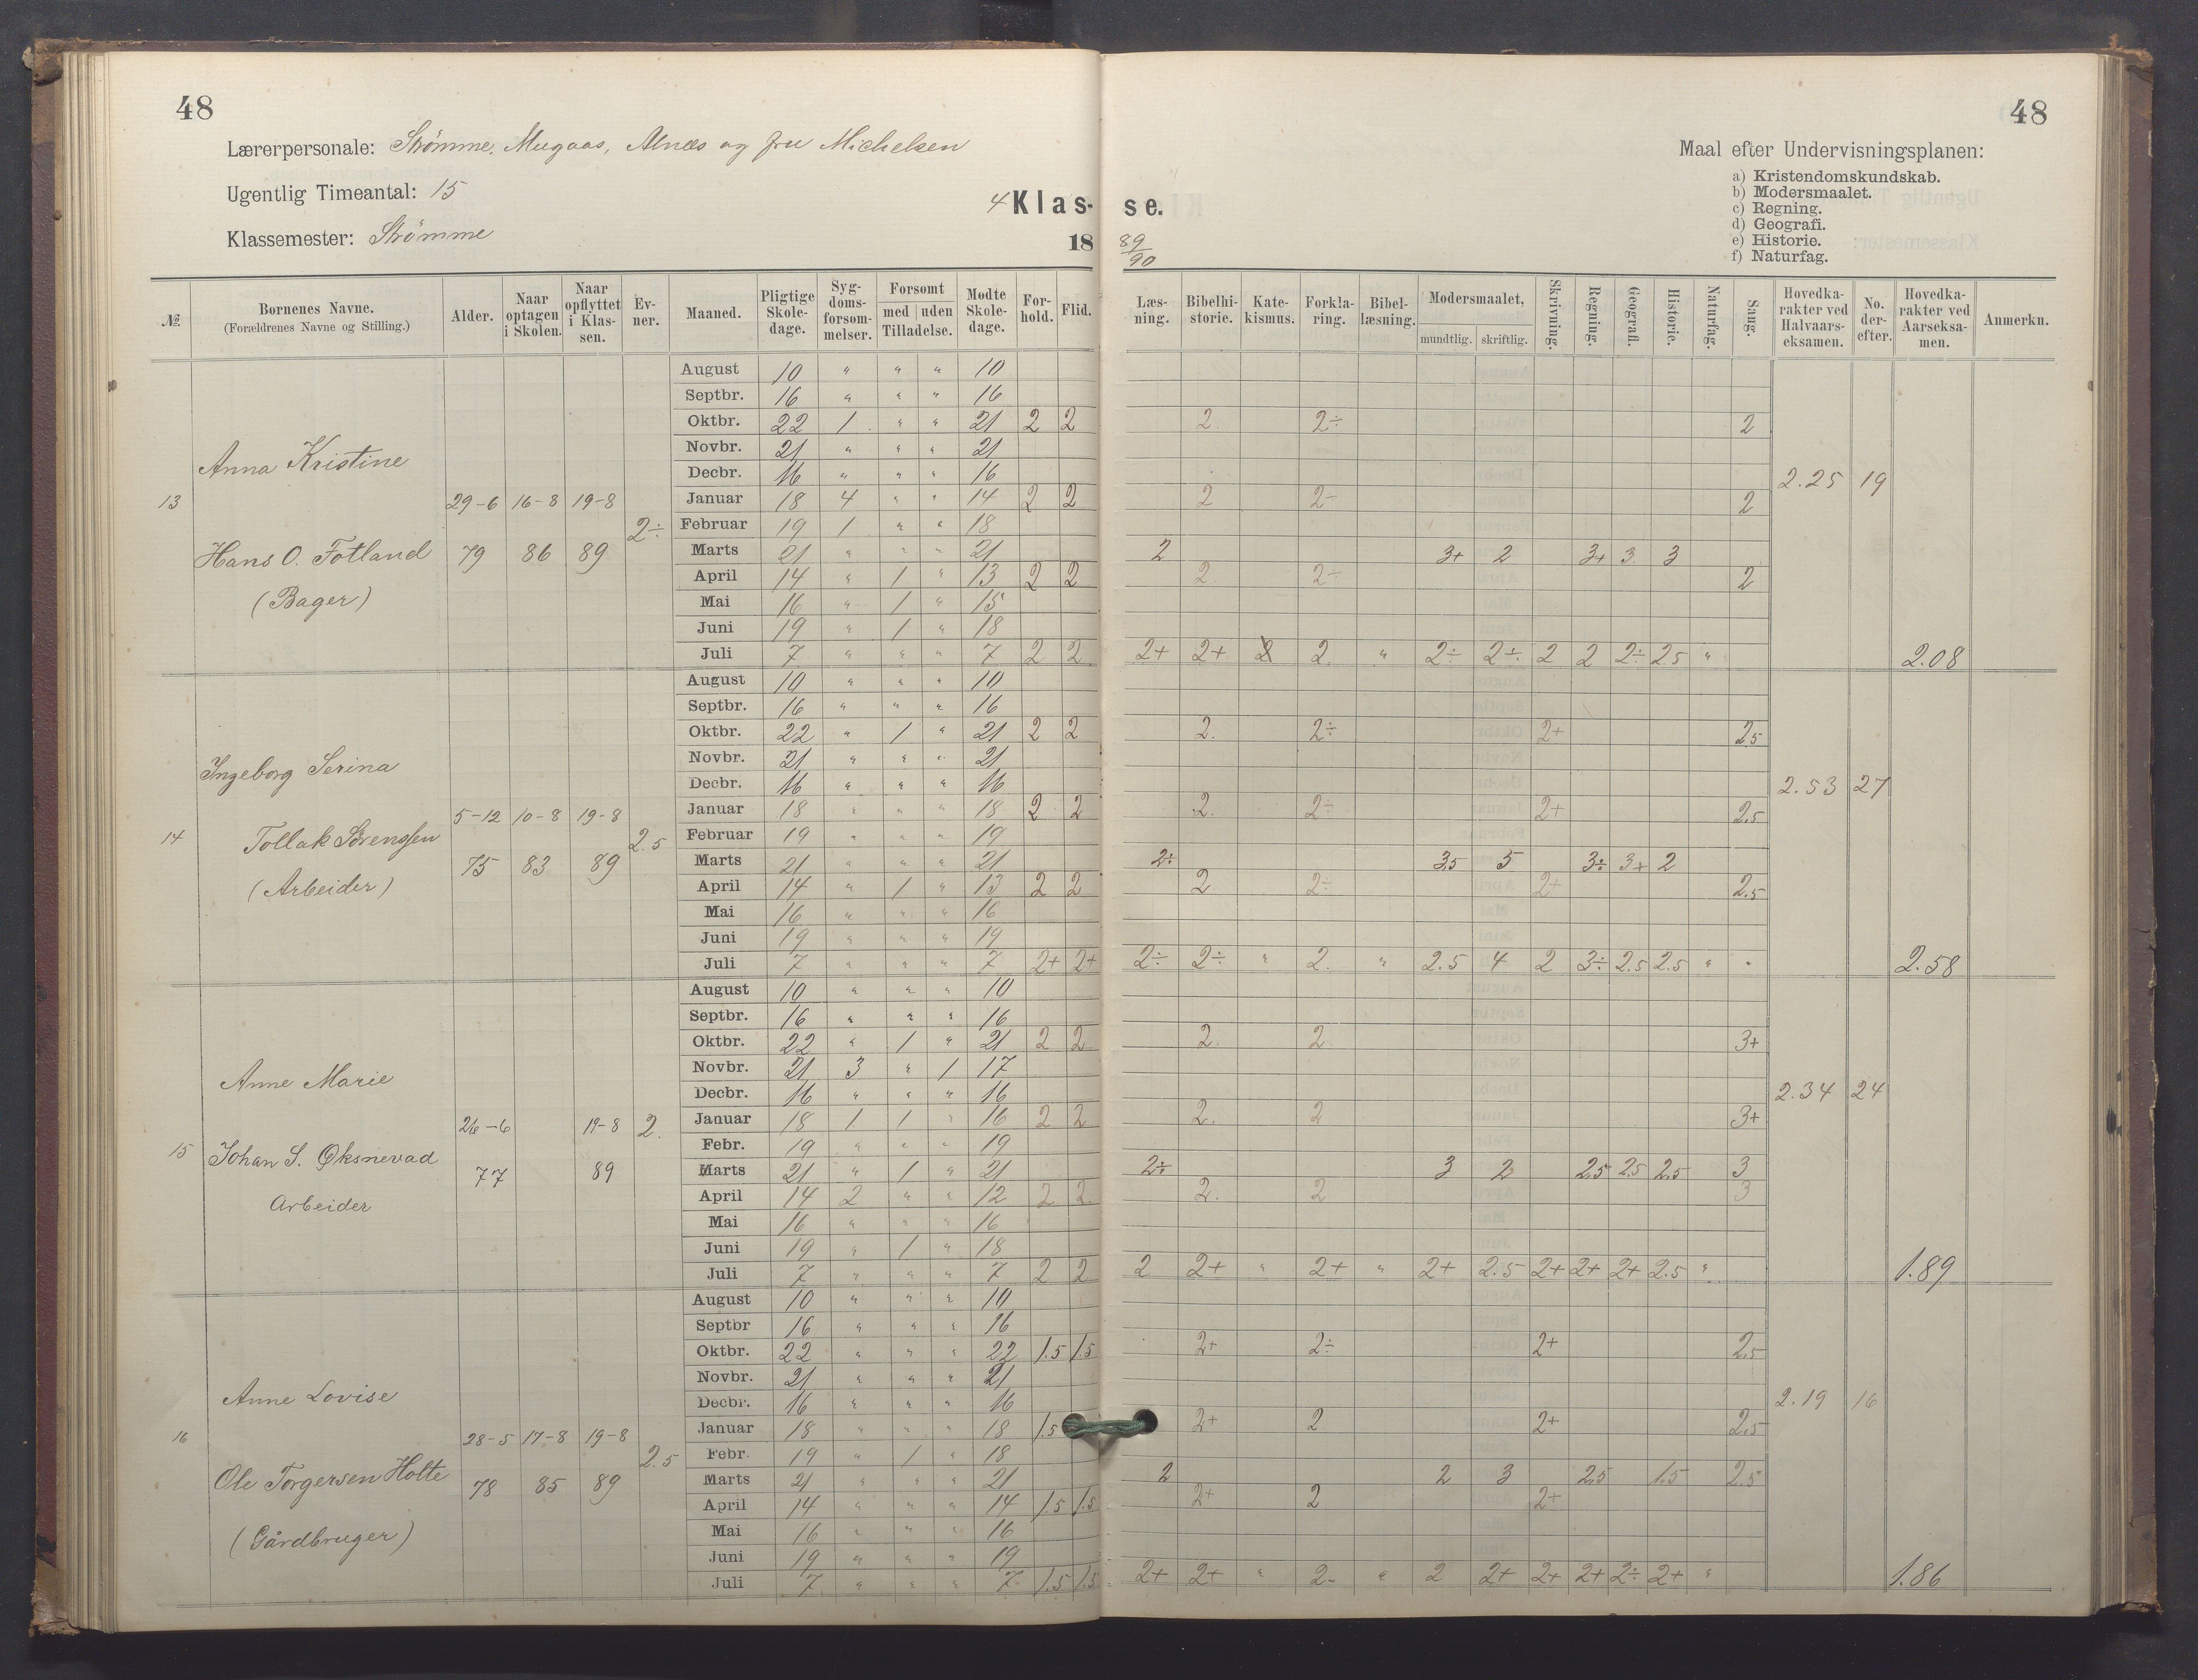 48
48
Lærerpersonale: Strømme, Mugaas, Alnæs og fru Michelsen
Ugentlig Timeantal: 15
Klassemester: Strømme
4 Klas- se.
18 89/90
Maal efter Undervisningsplanen:
a) Kristendomskundskab.
b) Modersmaalet.
c) Regning.
d) Geografi.
e) Historie.
f) Naturfag.
№ Børnenes Navne. (Forældrenes Navne og Stilling.) Alder. Naar optagen i Skolen. Naar opflyttet i Klassen. Evner. Maaned. Pligtige Skoledage. Sygdomsforsømmelser. Forsømt med uden Tilladelse. Mødte Skoledage. Forhold. Flid. Læsning. Bibelhistorie. Katekismus. Forklaring. Bibellæsning. Modersmaalet, mundtlig. skriftlig. Skrivning. Regning. Geografi. Historie. Naturfag. Sang. Hovedkarakter ved Halvaarseksamen. No. derefter. Hovedkarakter ved Aarseksamen. Anmerkn.
13 Anna Kristine
Hans O. Fotland
(Bager)
29-6 79 16-8 86 19-8 89 2÷
August 10 " " " 10
Septbr. 16 " " " 16
Oktbr. 22 1 " " 21 2 2 2. 2÷ 2
Novbr. 21 " " " 21
Decbr. 16 " " " 16 2.25 19
Januar 18 4 " " 14 2 2 2 2÷ 2
Februar 19 1 " " 18
Marts 21 " " " 21 2 3+ 2 3+ 3 3
April 14 " 1 " 13 2 2 2 2÷ 2
Mai 16 " 1 " 15
Juni 19 " 1 " 18
Juli 7 " " " 7 2 2 2+ 2+ 2 " 2÷ 2÷ 2 2 2÷ 2.5 " 2.08
14 Ingeborg Serina
Tollak Sørenssen
(Arbeider)
5-12 75 10-8 83 19-8 89 2.5
August 10 " " " 10
Septbr. 16 " " " 16
Oktbr. 22 " 1 " 21 2 2 2. 2÷ 2+ 2.5
Novbr. 21 " " " 21
Decbr. 16 " " " 16 2.53 27
Januar 18 " " " 18 2 2 2. 2÷ 2+ 2.5
Februar 19 " " " 19
Marts 21 " " " 21 2÷ 3.5 5 3÷ 3+ 2
April 14 " 1 " 13 2 2 2 2÷ 2+ 2.5
Mai 16 " " " 16
Juni 19 " " " 19
Juli 7 " " " 7 2+ 2+ 2÷ 2÷ " 2. " 2.5 4 2 3÷ 2.5 2.5 " " 2.58
15 Anne Marie
Johan S. Øksnevad
Arbeider
26-6 77 19-8 89 2.
August 10 " " " 10
Septbr. 16 " " " 16
Oktbr. 22 " 1 " 21 2 2 2. 2 3+
Novbr. 21 3 " 1 17
Decbr. 16 " " " 16 2.34 24
Januar 18 1 1 " 16 2 2 2. 2 3+
Febr. 19 " " " 19
Marts 21 " 1 " 21 2÷ 3 2 2.5 2.5 2.5 3
April 14 2 " " 12 2 2 2. 2 3
Mai 16 " " " 16
Juni 19 " 1 " 18
Juli 7 " " " 7 2 2 2 2+ " 2+ " 2+ 2.5 2+ 2+ 2+ 2.5 " 1.89
16 Anne Lovise
Ole Torgersen Holte
(Gårdbruger)
28-5 78 17-8 85 19-8 89 2.5
August 10 " " " 10
Septbr 16 " " " 16
Oktbr. 22 " " " 22 1.5 1.5 2+ 2÷ 2+ 2.5
Novbr. 21 " " " 21
Decbr. 16 " " " 16 2.19 16
Januar 18 " " " 18 1.5 2+ 2 2+ 2.5
Febr. 19 " 1 " 18
Marts 21 " " " 21 2 2 3 2.5 1.5 2.5
April 14 " " " 14 1.5 1.5 2+ 2 2+
Mai 16 " " " 16
Juni 19 " " " 19
Juli 7 " " " 7 1.5 1.5 2+ 2+ " 2- " 2 2+ 2+ 2+ 2÷ 2+ " 1.86